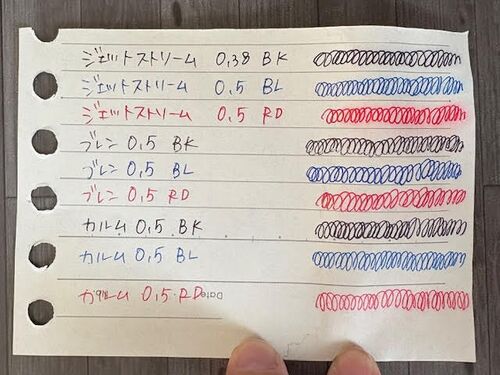 ジェットストリーム 0.38 BK
ジェットストリーム 0.5 BL
ジェットストリーム 0.5 RD
ブレン 0.5 BK
ブレン 0.5 BL
ブレン 0.5 RD
カルム 0.5 BK
カルム 0.5 BL
カルム 0.5 RD
Date